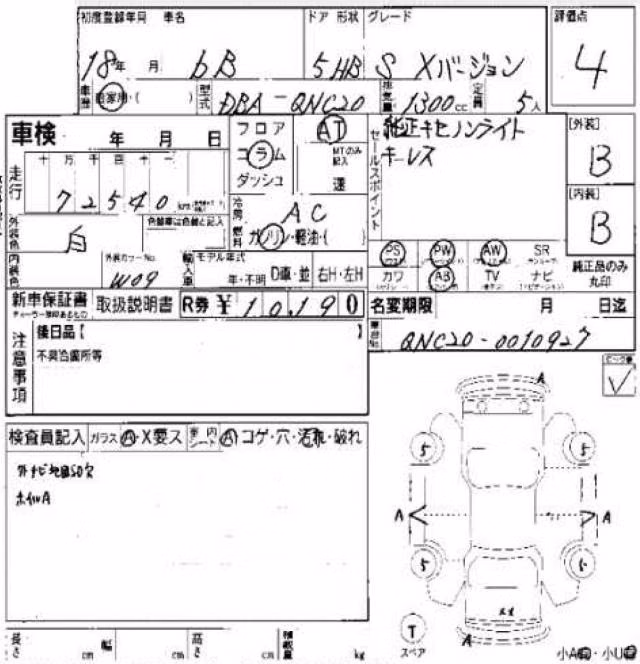 初度登録年月 車名 ドア 形状 グレード 評価点
18年 月 bB 5 HB S Xバージョン 4
車歴 自家用・( ) 型式 DBA-QNC20 排気量 1300cc 定員 5人
車検 年 月 日 フロア AT セールスポイント 純正キセノンライト [外装]
走行 十 万 千 百 十 一 コラム MTのみ記入 キーレス B
72540 ダッシュ 速 [内装]
冷房 AC B
外装色 白 色替車は色替と記入 燃料 ガソリン・軽油・( )
PS PW AW SR 純正品のみ
内装色 外装カラーNo. W09 輸入車 モデル年式 カワ AB TV ナビ 丸印
年・不明 D車・並 右H・左H
新車保証書 取扱説明書 R券 ¥10,190 名変期限 月 日迄
注意事項 後日品【 】 車台No. QNC20-0010927
不具合箇所等
検査員記入 ガラス A・X要ス 内 シート A コゲ・穴・汚れ・破れ
外ナビ地図SD欠
ホイルA
A
5 5
A A
5
A
T
スペア
長さ cm 幅 cm 高さ cm 積載量 kg 小A・小U